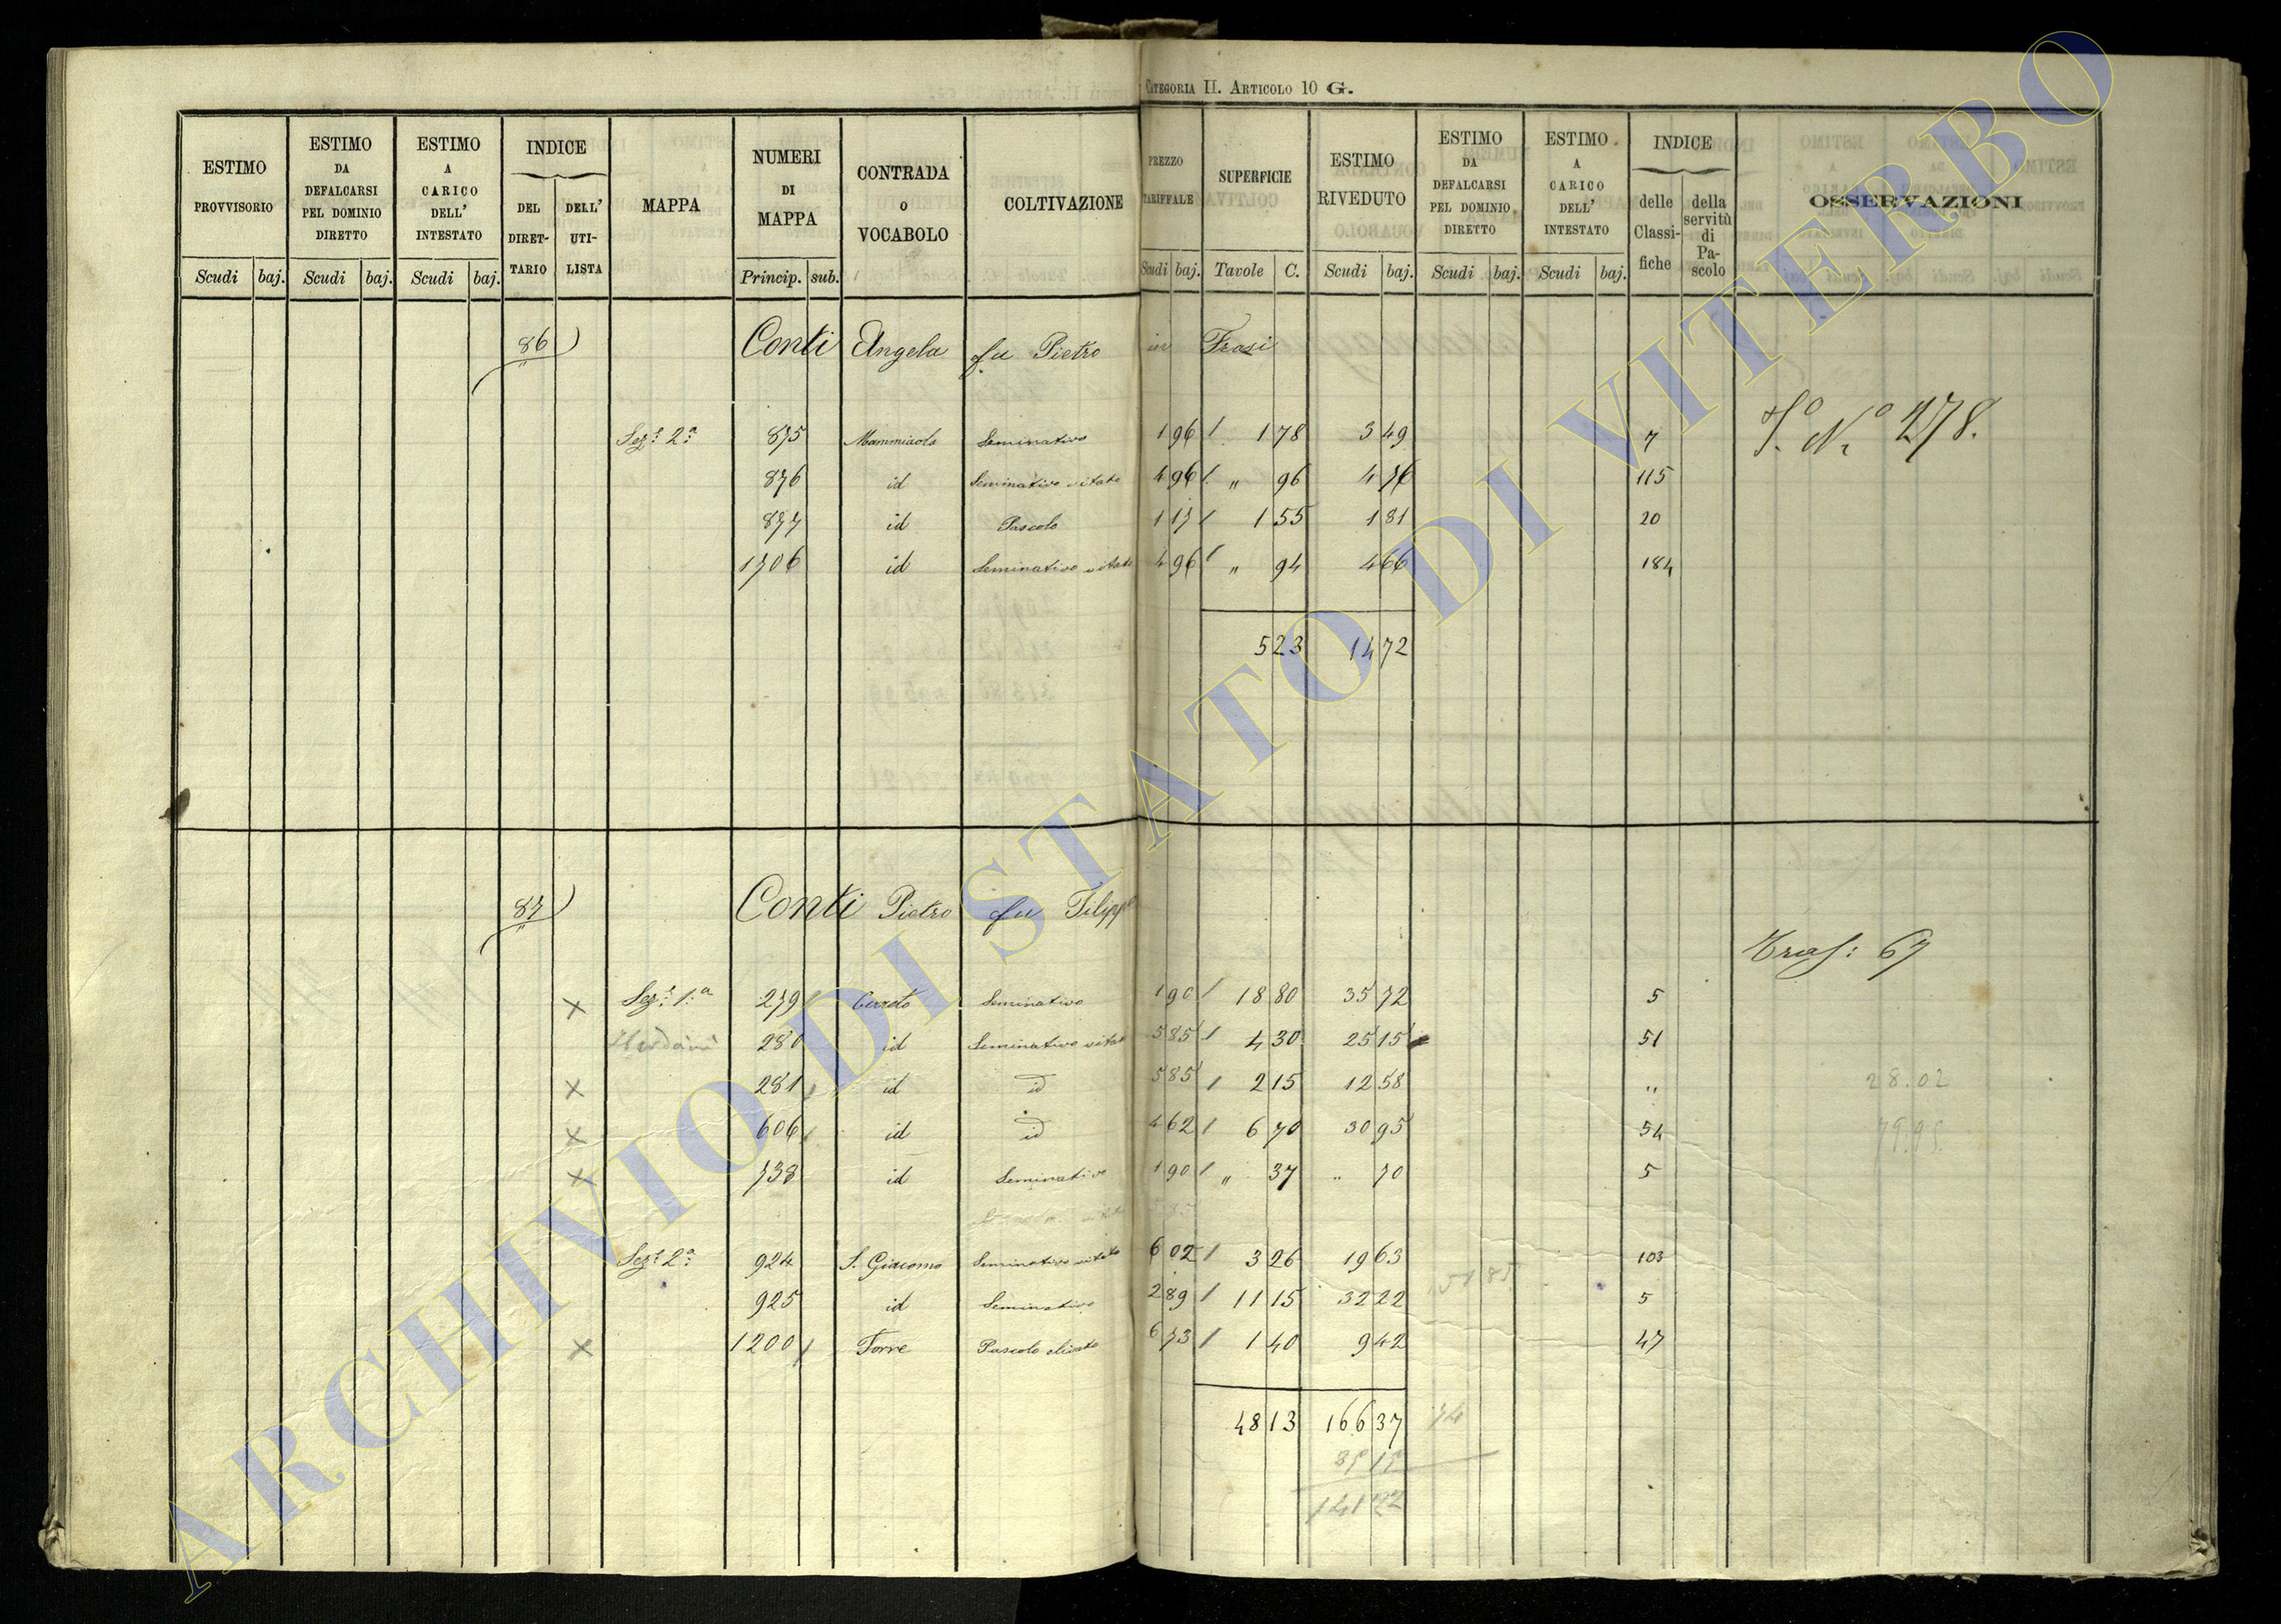 CATEGORIA II. ARTICOLO 10 G.
ESTIMO PROVVISORIO
ESTIMO DA DEFALCARSI PEL DOMINIO DIRETTO
ESTIMO A CARICO DELL' INTESTATO
INDICE
DEL DIRETTARIO
DELL' UTILISTA
MAPPA
NUMERI DI MAPPA
CONTRADA O VOCABOLO
COLTIVAZIONE
PREZZO TARIFFALE
SUPERFICIE
ESTIMO RIVEDUTO
ESTIMO DA DEFALCARSI PEL DOMINIO DIRETTO
ESTIMO A CARICO DELL' INTESTATO
INDICE
delle Classifiche
della servitù di Pascolo
OSSERVAZIONI
Scudi baj. Scudi baj. Scudi baj. Princip. sub. Scudi baj. Tavole C. Scudi baj. Scudi baj. Scudi baj.
86 Conti Angela fu Pietro in Frasi
Sezᵉ 2ª 875 Mammiaola Seminativo 1 96 1 78 3 49 7
N° 278.
876 id Seminativo vitato 4 96 " 96 4 76 115
877 id Pascolo 1 17 1 55 1 81 20
1706 id Seminativo vitato 4 96 " 94 4 66 184
5 23 14 72
87 Conti Pietro fu Filippo
Tras: 67
× Sezᵉ 1ª 279 Cerreto Seminativo 1 90 18 80 35 72 5
280 id Seminativo vitato 5 85 4 30 25 15 51
× 281 id id 5 85 2 15 12 58 " 28.02
× 606 id id 4 62 6 70 30 95 54 79.95
× 738 id Seminativo 1 90 " 37 " 70 5
Sezᵉ 2ª 924 S. Giacomo Seminativo vitato 6 02 3 26 19 63 103
925 id Seminativo 2 89 11 15 32 22 5 51 85
× 1200 Torre Pascolo olivato 6 73 1 40 9 42 47
48 13 166 37
25 15
141 22
ARCHIVIO DI STATO DI VITERBO